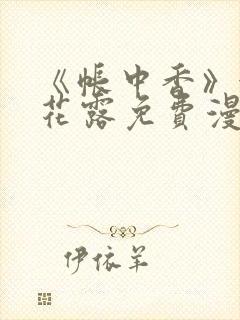 《帐中香》
花露免费漫
伊依羊